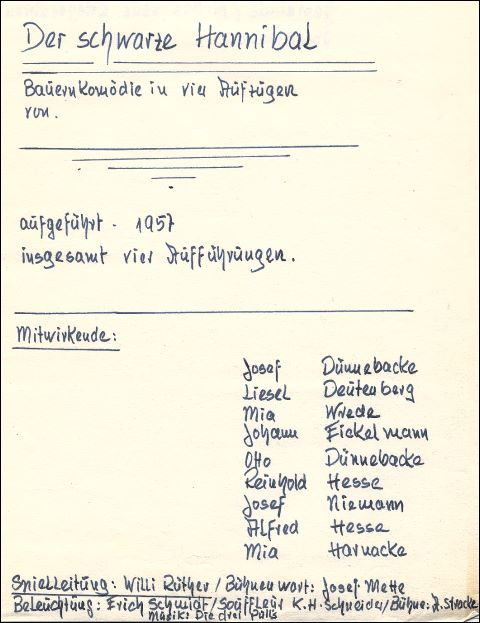 Der schwarze Hannibal
Bauernkomödie in vier Aufzügen
von.
aufgeführt - 1957
insgesamt vier Aufführungen.
Mitwirkende:
Josef Dünnebacke
Liesel Deutenberg
Mia Wrede
Johann Eickelmann
Otto Dünnebacke
Reinhold Hesse
Josef Niemann
Alfred Hesse
Mia Harnacke
Spielleitung: Willi Rüther / Bühnenwart: Josef Mette
Beleuchtung: Erich Schmidt / Souffleur K.H. Schneider / Bühne: A. Stracke
Musik: Die drei